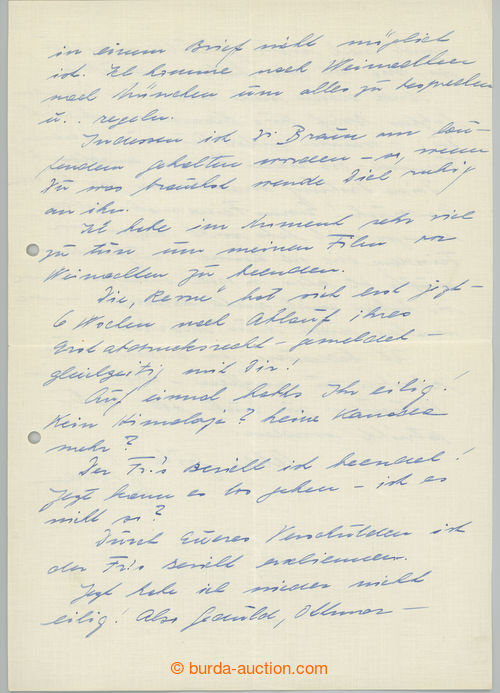 in einem Brief nicht möglich
ist. Ich komme nach Weinachten
nach München um alles zu besprechen
u. regeln.
Indessen ist Dr Braun am lau-
fendem gehalten worden – so, wenn
Du was brauchst wende Dich ruhig
an ihn.
Ich habe im Moment sehr viel
zu tun um meinen Film vor
Weinachten zu beenden.
Die „Revue" hat sich erst jezt –
6 Wochen nach Ablauf ihres
Erstabdrucksrecht – gemeldet –
gleichzeitig mit Dir!
Auf einmal habts Ihr eilig!
Kein Himalaja? keine
mehr?
Der Fr's Bericht ist beendet!
Jezt kann es los gehen – ist es
nicht so?
Durch Eueres Verschulden ist
der Fr's Bericht erschienen.
Jezt habe ich wieder nicht
eilig! Also Geduld, Othmar –
© burda-auction.com